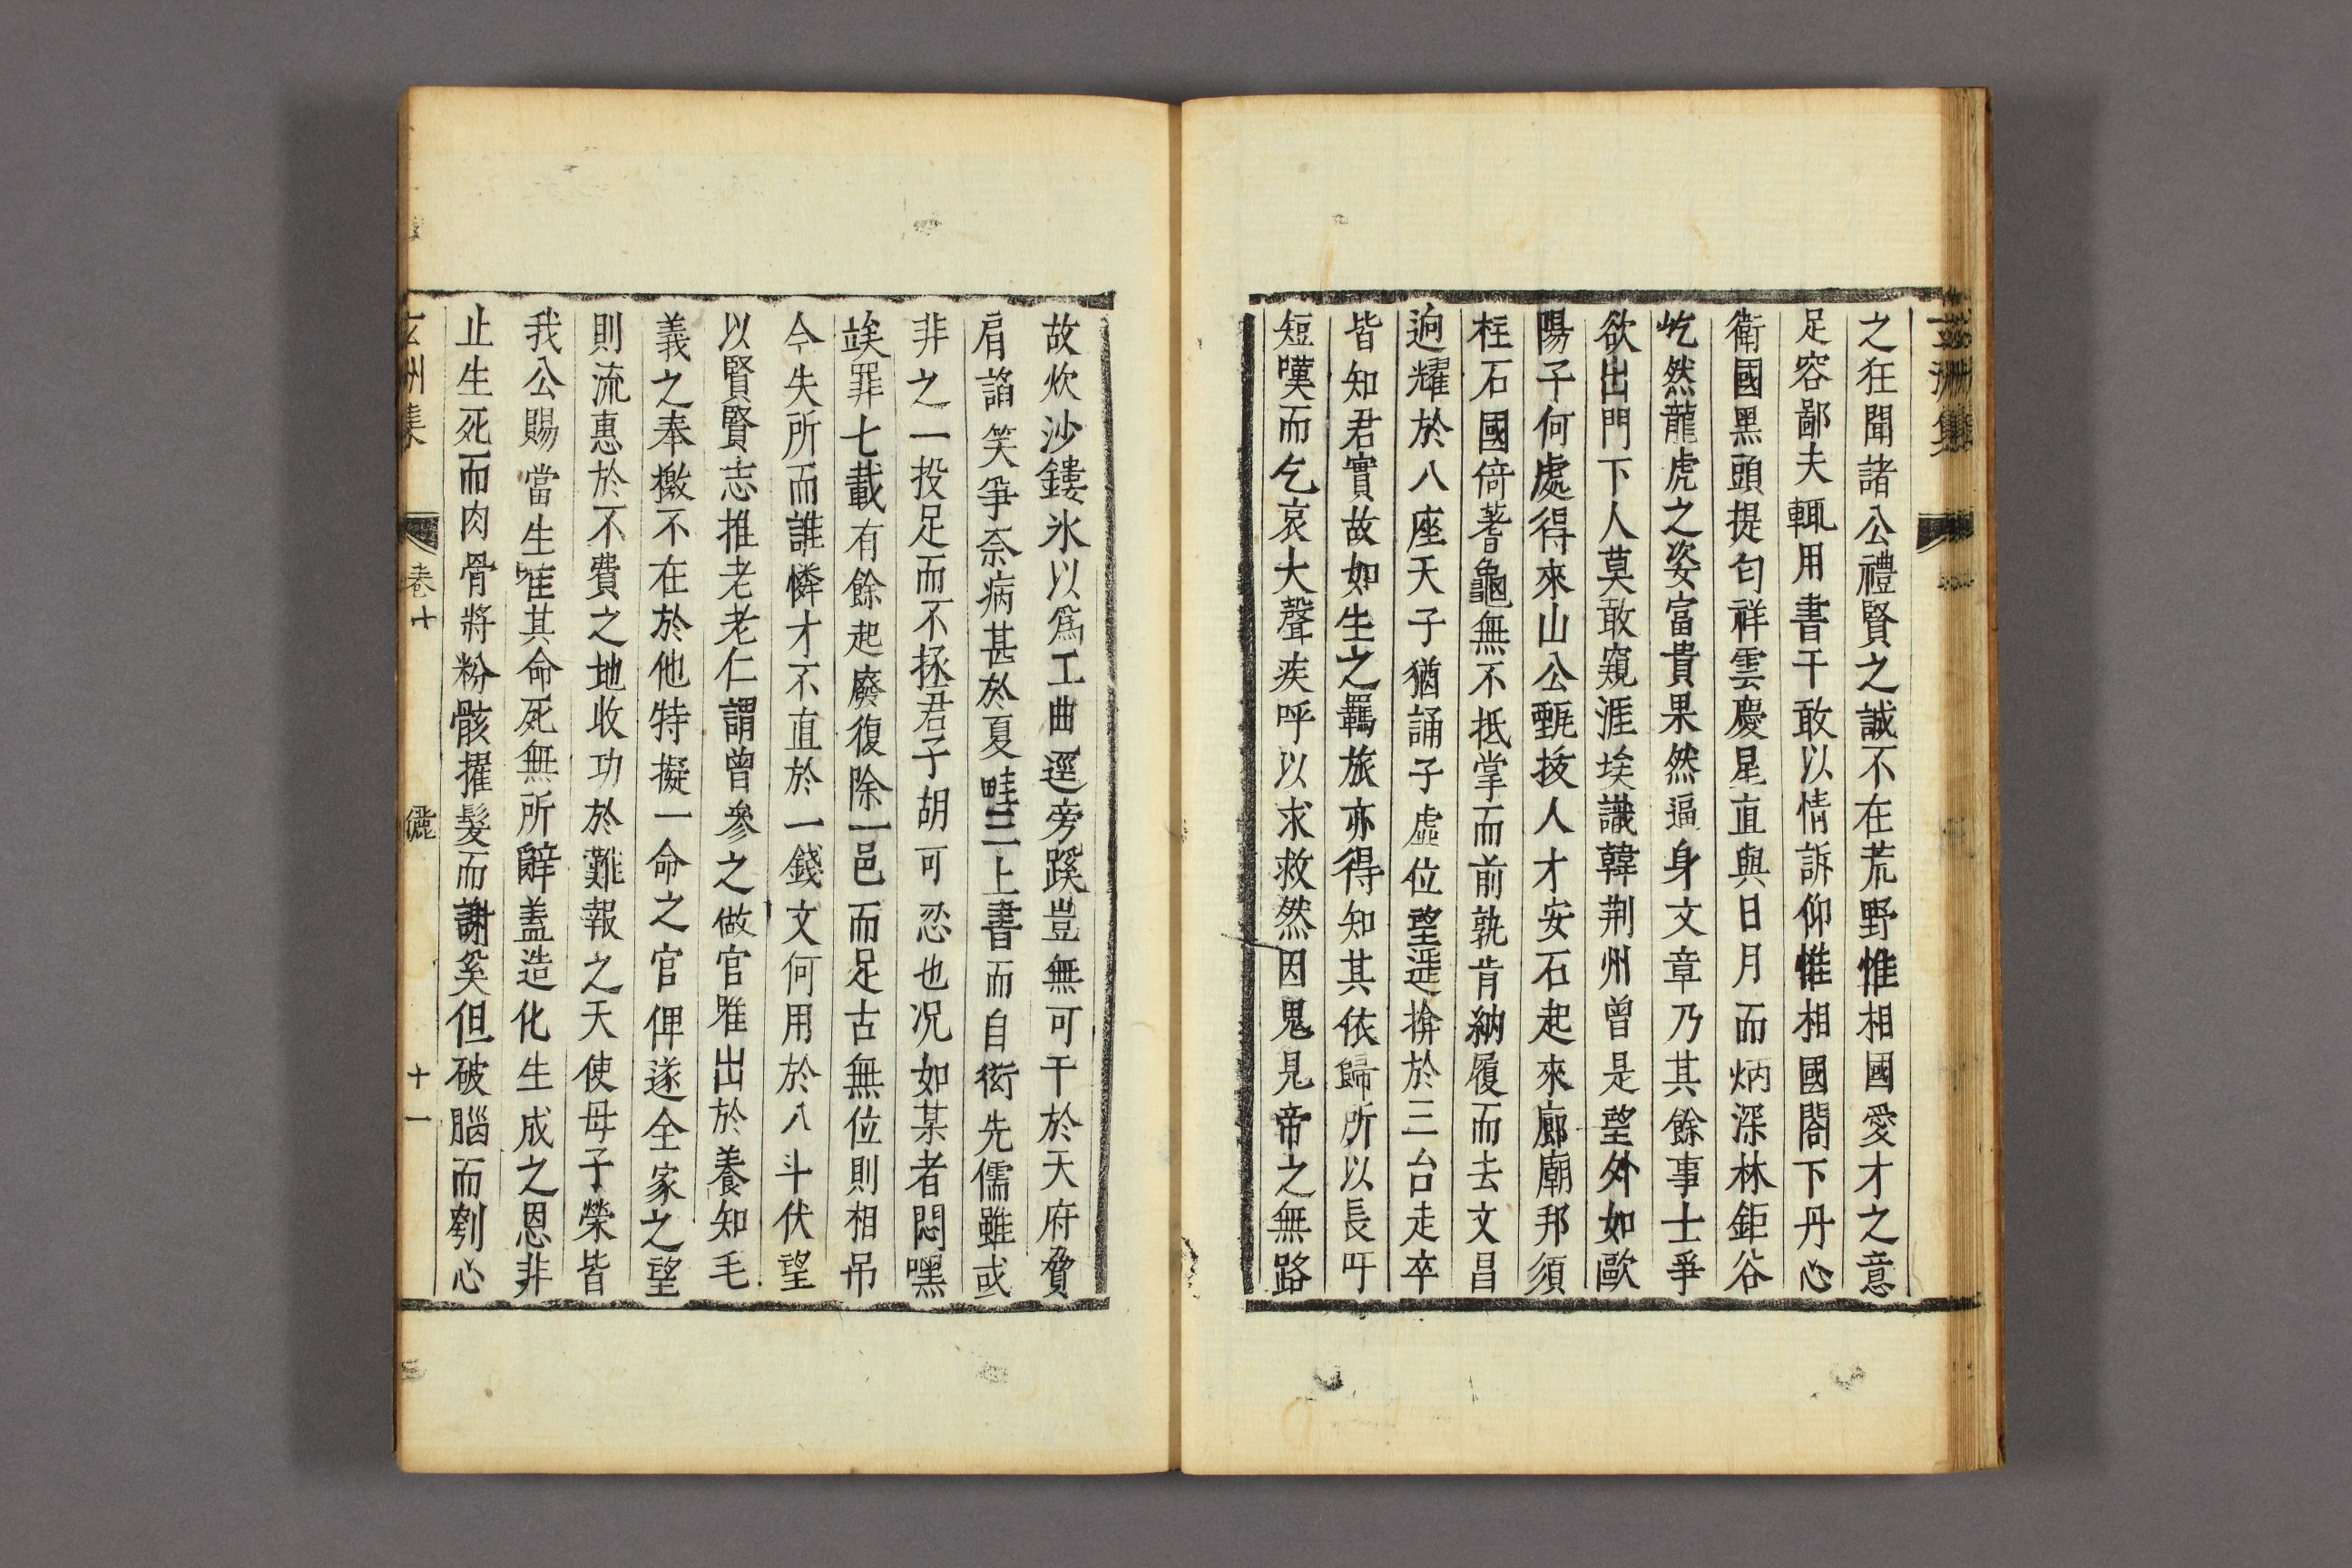 玄洲集
之狂聞諸公禮賢之誠不在荒野惟相國愛才之意
足容鄙夫輒用書干敢以情訴仰惟相國閤下丹心
衛國黑頭提匀祥雲慶星直與日月而炳深林鉅谷
屹然龍虎之姿富貴果然逼身文章乃其餘事士爭
欲出門下人莫敢窺涯埃識韓荆州曾是望外如歐
陽子何處得來山公甄拔人才安石起來廊廟邦須
柱石國倚蓍龜無不抵掌而前孰肯納履而去文昌
逈耀於八座天子猶誦子虛位望遥揜於三台走卒
皆知君實故如生之羈旅亦得知其依歸所以長吁
短嘆而乞哀大聲疾呼以求救然因鬼見帝之無路
故炊沙鏤氷以爲工曲逕旁蹊豈無可干於天府脅
肩諂笑爭奈病甚於夏畦三上書而自衒先儒雖或
非之一投足而不拯君子胡可忍也况如某者悶嘿
竢罪七載有餘起廢復除一邑而足古無位則相吊
今失所而誰憐才不直於一錢文何用於八斗伏望
以賢賢志推老老仁謂曾參之做官雖出於養知毛
義之奉檄不在於他特擬一命之官俾遂全家之望
則流惠於不費之地收功於難報之天使母子榮皆
我公賜當生隹其命死無所辭盖造化生成之恩非
止生死而肉骨將粉骸擢髮而謝奚但破腦而刳心
玄洲集 卷十 儷 十一